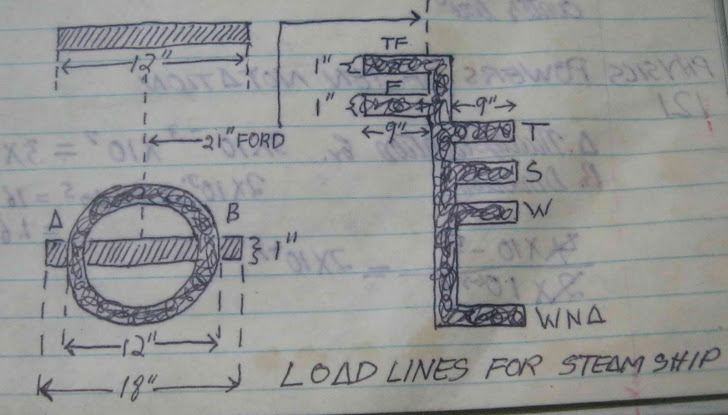 12"
21" FORD
A
B
1"
12"
18"
TF
1"
F
1"
9"
9"
T
S
W
WNA
LOAD LINES FOR STEAM SHIP